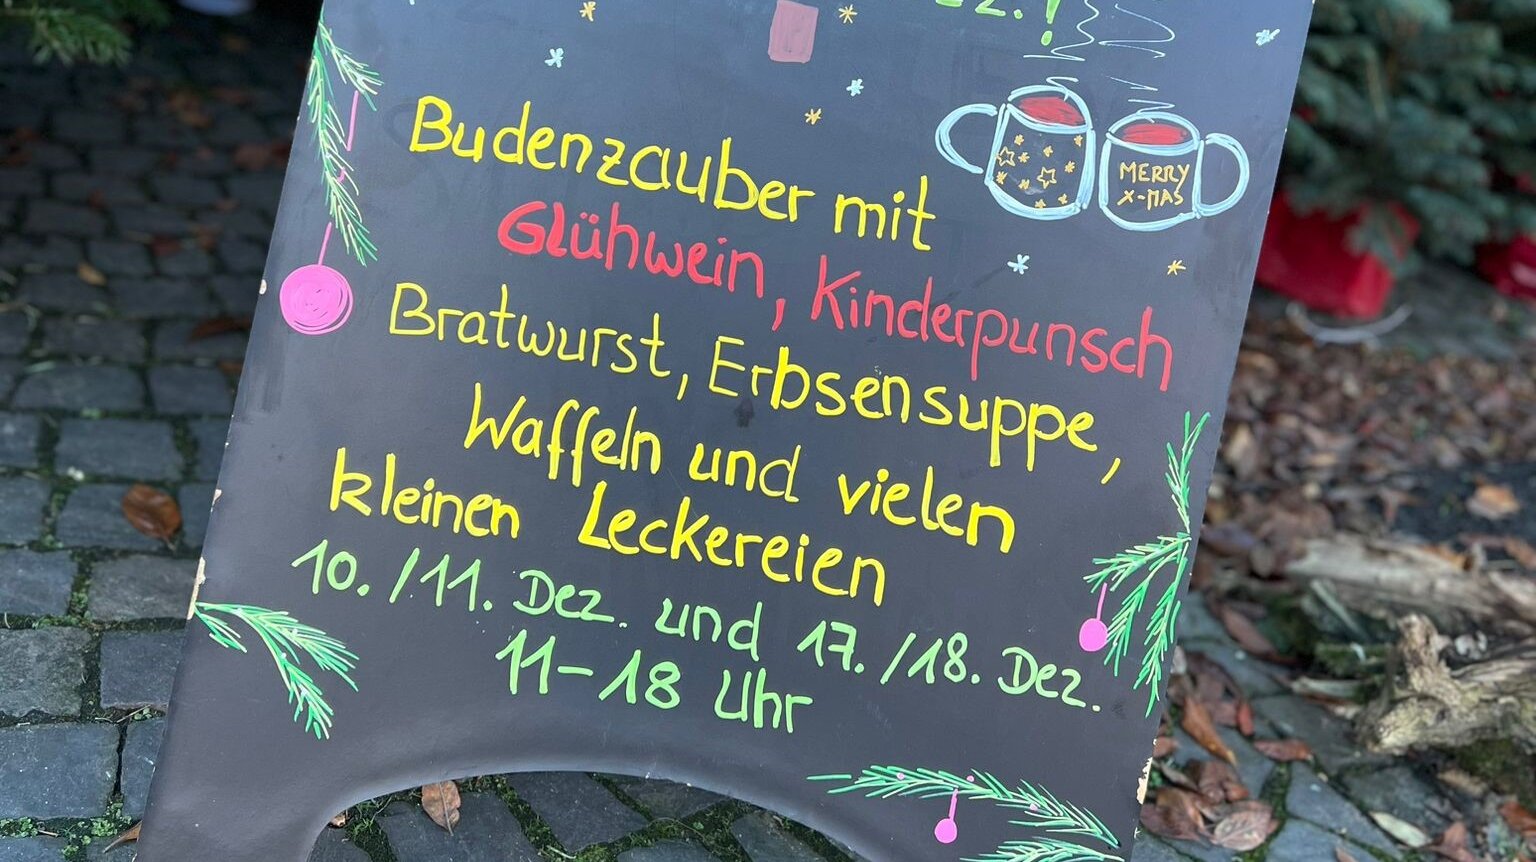 Budenzauber mit
MERRY
X-MAS
Glühwein, Kinderpunsch
Bratwurst, Erbsensuppe,
Waffeln und vielen
kleinen Leckereien
10./11. Dez. und 17./18. Dez.
11-18 Uhr